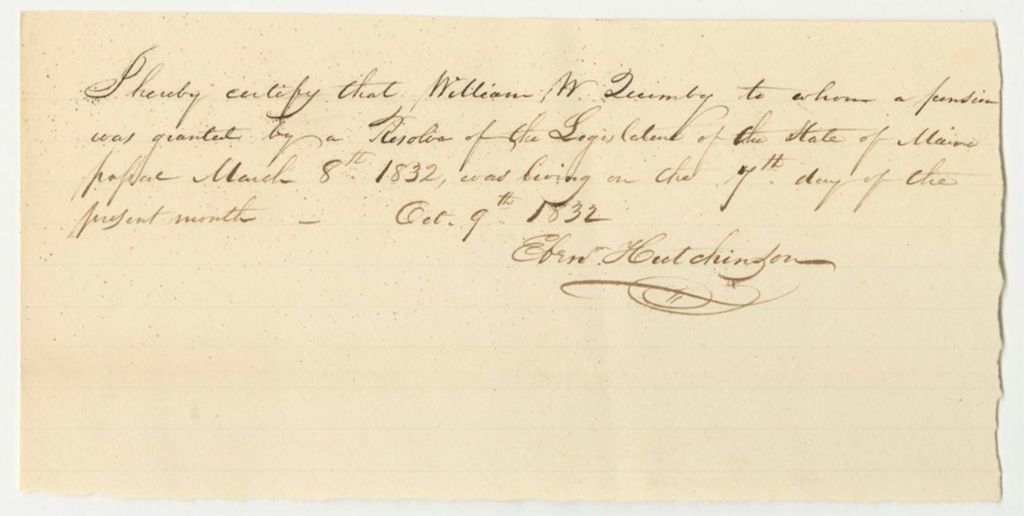 I hereby certify that William W. Quimby to whom a pension
was granted by a Resolve of the Legislature of the State of Maine
passed March 8th 1832, was living on the 7th day of the
present month — Oct. 9th 1832
Ebenr Hutchinson